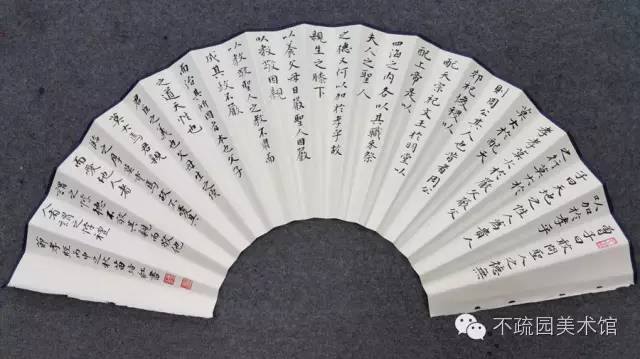 曾子曰敢問聖人之德無
以加於孝乎
子曰天地之性人為貴人
之行莫大於
孝孝莫大於嚴父嚴父
莫大於配天
則周公其人也昔者周公
郊祀后稷以
配天宗祀文王於明堂以
配上帝是以
四海之內各以其職來祭
夫人之聖人
之德又何以加於孝乎故
親生之膝下
以養父母日嚴聖人因嚴
以教敬因親
以教敬聖人之教不肅而
成其政不嚴
而治其所因者本也父子
之道天性也
君臣之義也父母生之續
莫大焉君親
臨之厚莫重焉故不愛其親
而愛他人者
謂之悖德不敬其親而敬他
人者謂之悖禮
節孝經丙申之秋苗培紅書
不疏园美术馆